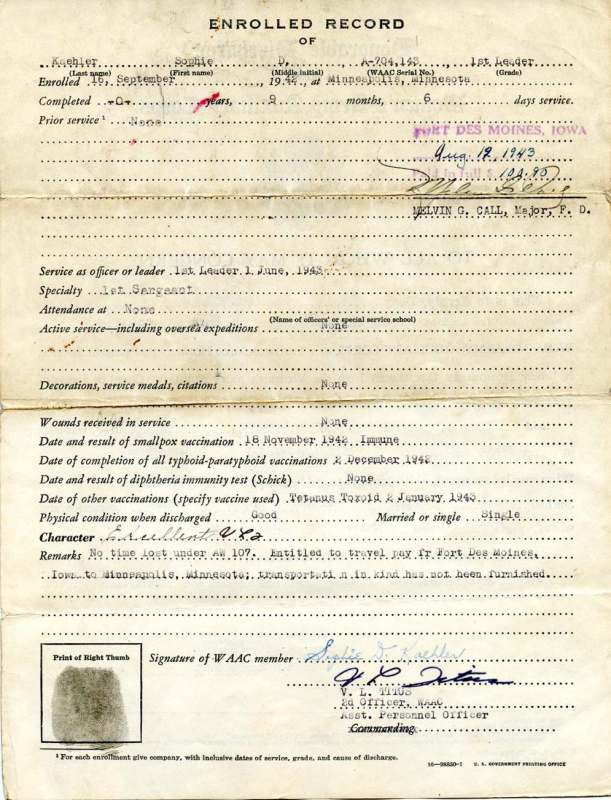 ENROLLED RECORD
OF
Kaehler Sophie D. A-704,143 1st Leader
(Last name) (First name) (Middle initial) (WAAC Serial No.) (Grade)
Enrolled 16, September, 1942, at Minneapolis, Minnesota
Completed -0- years, 9 months, 6 days service.
Prior service ¹ None
FORT DES MOINES, IOWA
Aug. 12, 1943
in full $ 100.90
MELVIN G. CALL, Major, F. D.
Service as officer or leader 1st Leader 1 June, 1943
Specialty 1st Sargeant
Attendance at None
(Name of officers' or special service school)
Active service—including oversea expeditions None
Decorations, service medals, citations None
Wounds received in service None
Date and result of smallpox vaccination 18 November 1942 Immune
Date of completion of all typhoid-paratyphoid vaccinations 2 December 1942
Date and result of diphtheria immunity test (Schick) None
Date of other vaccinations (specify vaccine used) Tetanus Toxoid 2 January 1943
Physical condition when discharged Good Married or single Single
Character Excellent
Remarks No time lost under AW 107. Entitled to travel pay fr Fort Des Moines,
Iowa to Minneapolis, Minnesota; transportati n in kind has not been furnished.
Print of Right Thumb
Signature of WAAC member Sophie D. Kaehler
V L Titus
V. L. TITUS
2d Officer, WAAC
Asst. Personnel Officer
Commanding
¹ For each enrollment give company, with inclusive dates of service, grade, and cause of discharge.
16—28550-1 U. S. GOVERNMENT PRINTING OFFICE